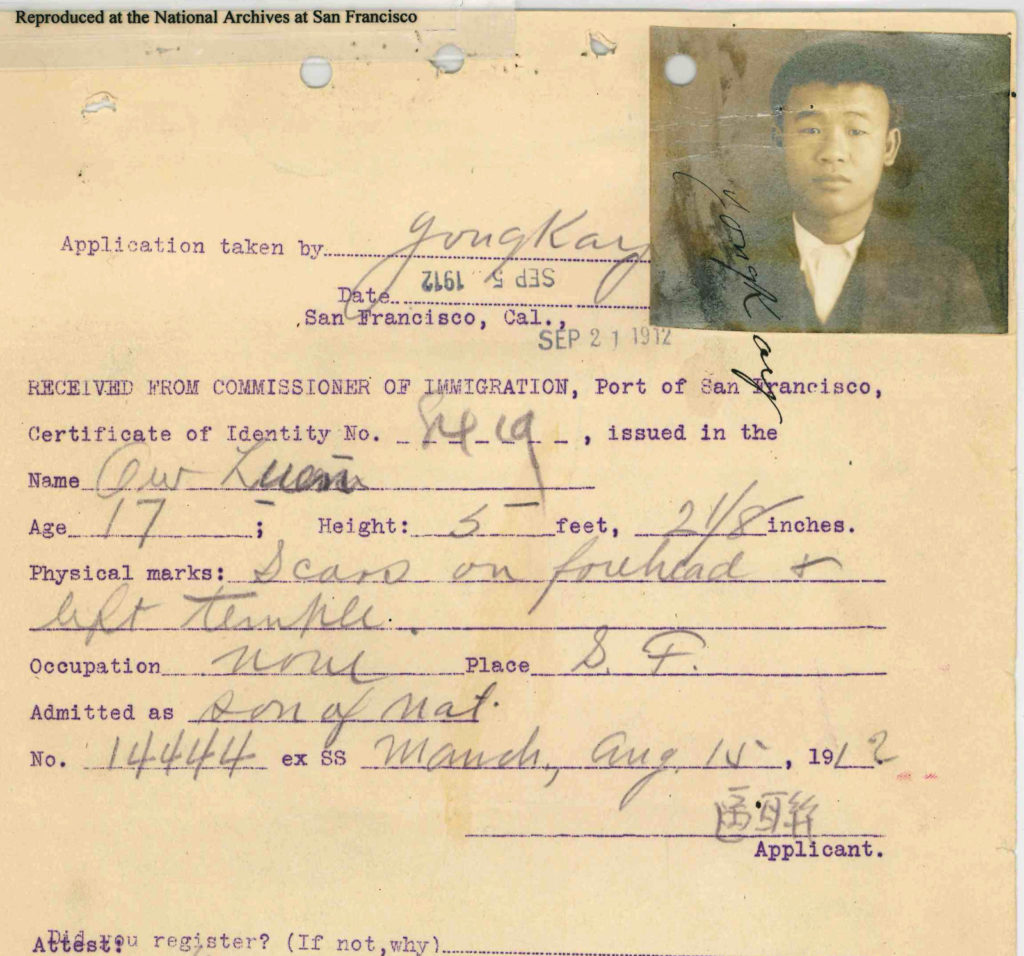 Reproduced at the National Archives at San Francisco
Application taken by Yong Kay
SEP 5 1912
Date
San Francisco, Cal.,
SEP 21 1912
Yong Kay
RECEIVED FROM COMMISSIONER OF IMMIGRATION, Port of San Francisco,
Certificate of Identity No. , issued in the
Name Ow Luen
Age 17 ; Height: 5 feet, 2 1/8 inches.
Physical marks: Scars on forehead &
left temple.
Occupation none Place S. F.
Admitted as son of nat.
No. 14444 ex SS Manch., Aug. 15, 1912
區聯
Applicant.
Did you register? (If not,why)
Attest: